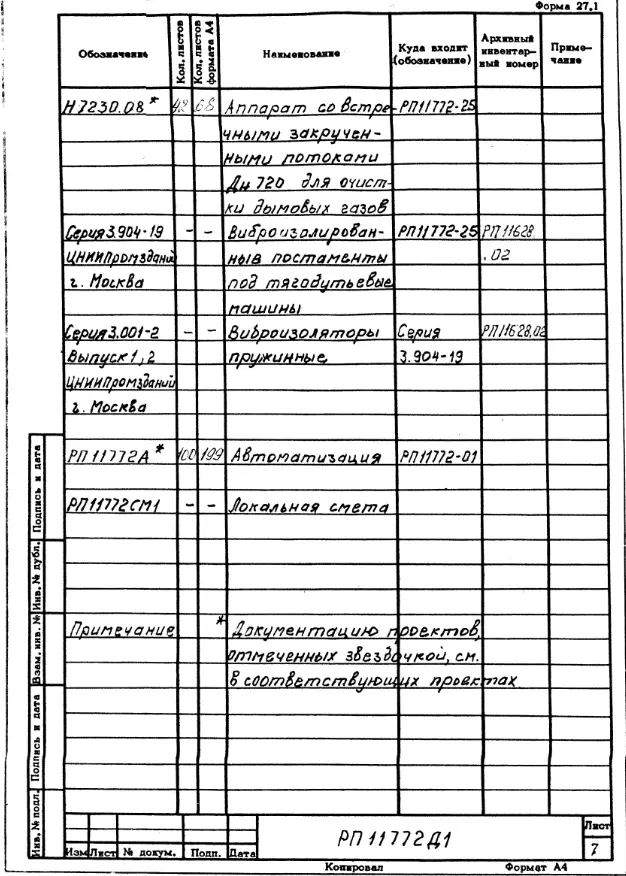 Форма 27.1
Обозначение Кол. листов Кол. листов формата А4 Наименование Куда входит (обозначение) Архивный инвентарный номер Примечание
Н7230.08* 42 68 Аппарат со встре- РП11772-25
чными закручен-
ными потоками
Дн 720 для очист-
ки дымовых газов
Серия 3.904-19 – – Виброизолирован- РП11772-25 РП11628
ЦНИИПромзданий ные постаменты .02
г. Москва под тягодутьевые
машины
Серия 3.001-2 – – Виброизоляторы Серия РП11628.02
Выпуск 1, 2 пружинные 3.904-19
ЦНИИПромзданий
г. Москва
РП11772А* 100 199 Автоматизация РП11772-01
РП11772СМ1 – – Локальная смета
Примечание * Документацию проектов,
отмеченных звездочкой, см.
в соответствующих проектах
Инв. № подл. Подпись и дата Взам. инв. № Инв. № дубл. Подпись и дата
РП 11772Д1
Лист
7
Изм Лист № докум. Подп. Дата
Копировал Формат А4